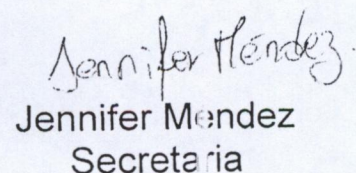 Jennifer Méndez.
Jennifer Mendez
Secretaria